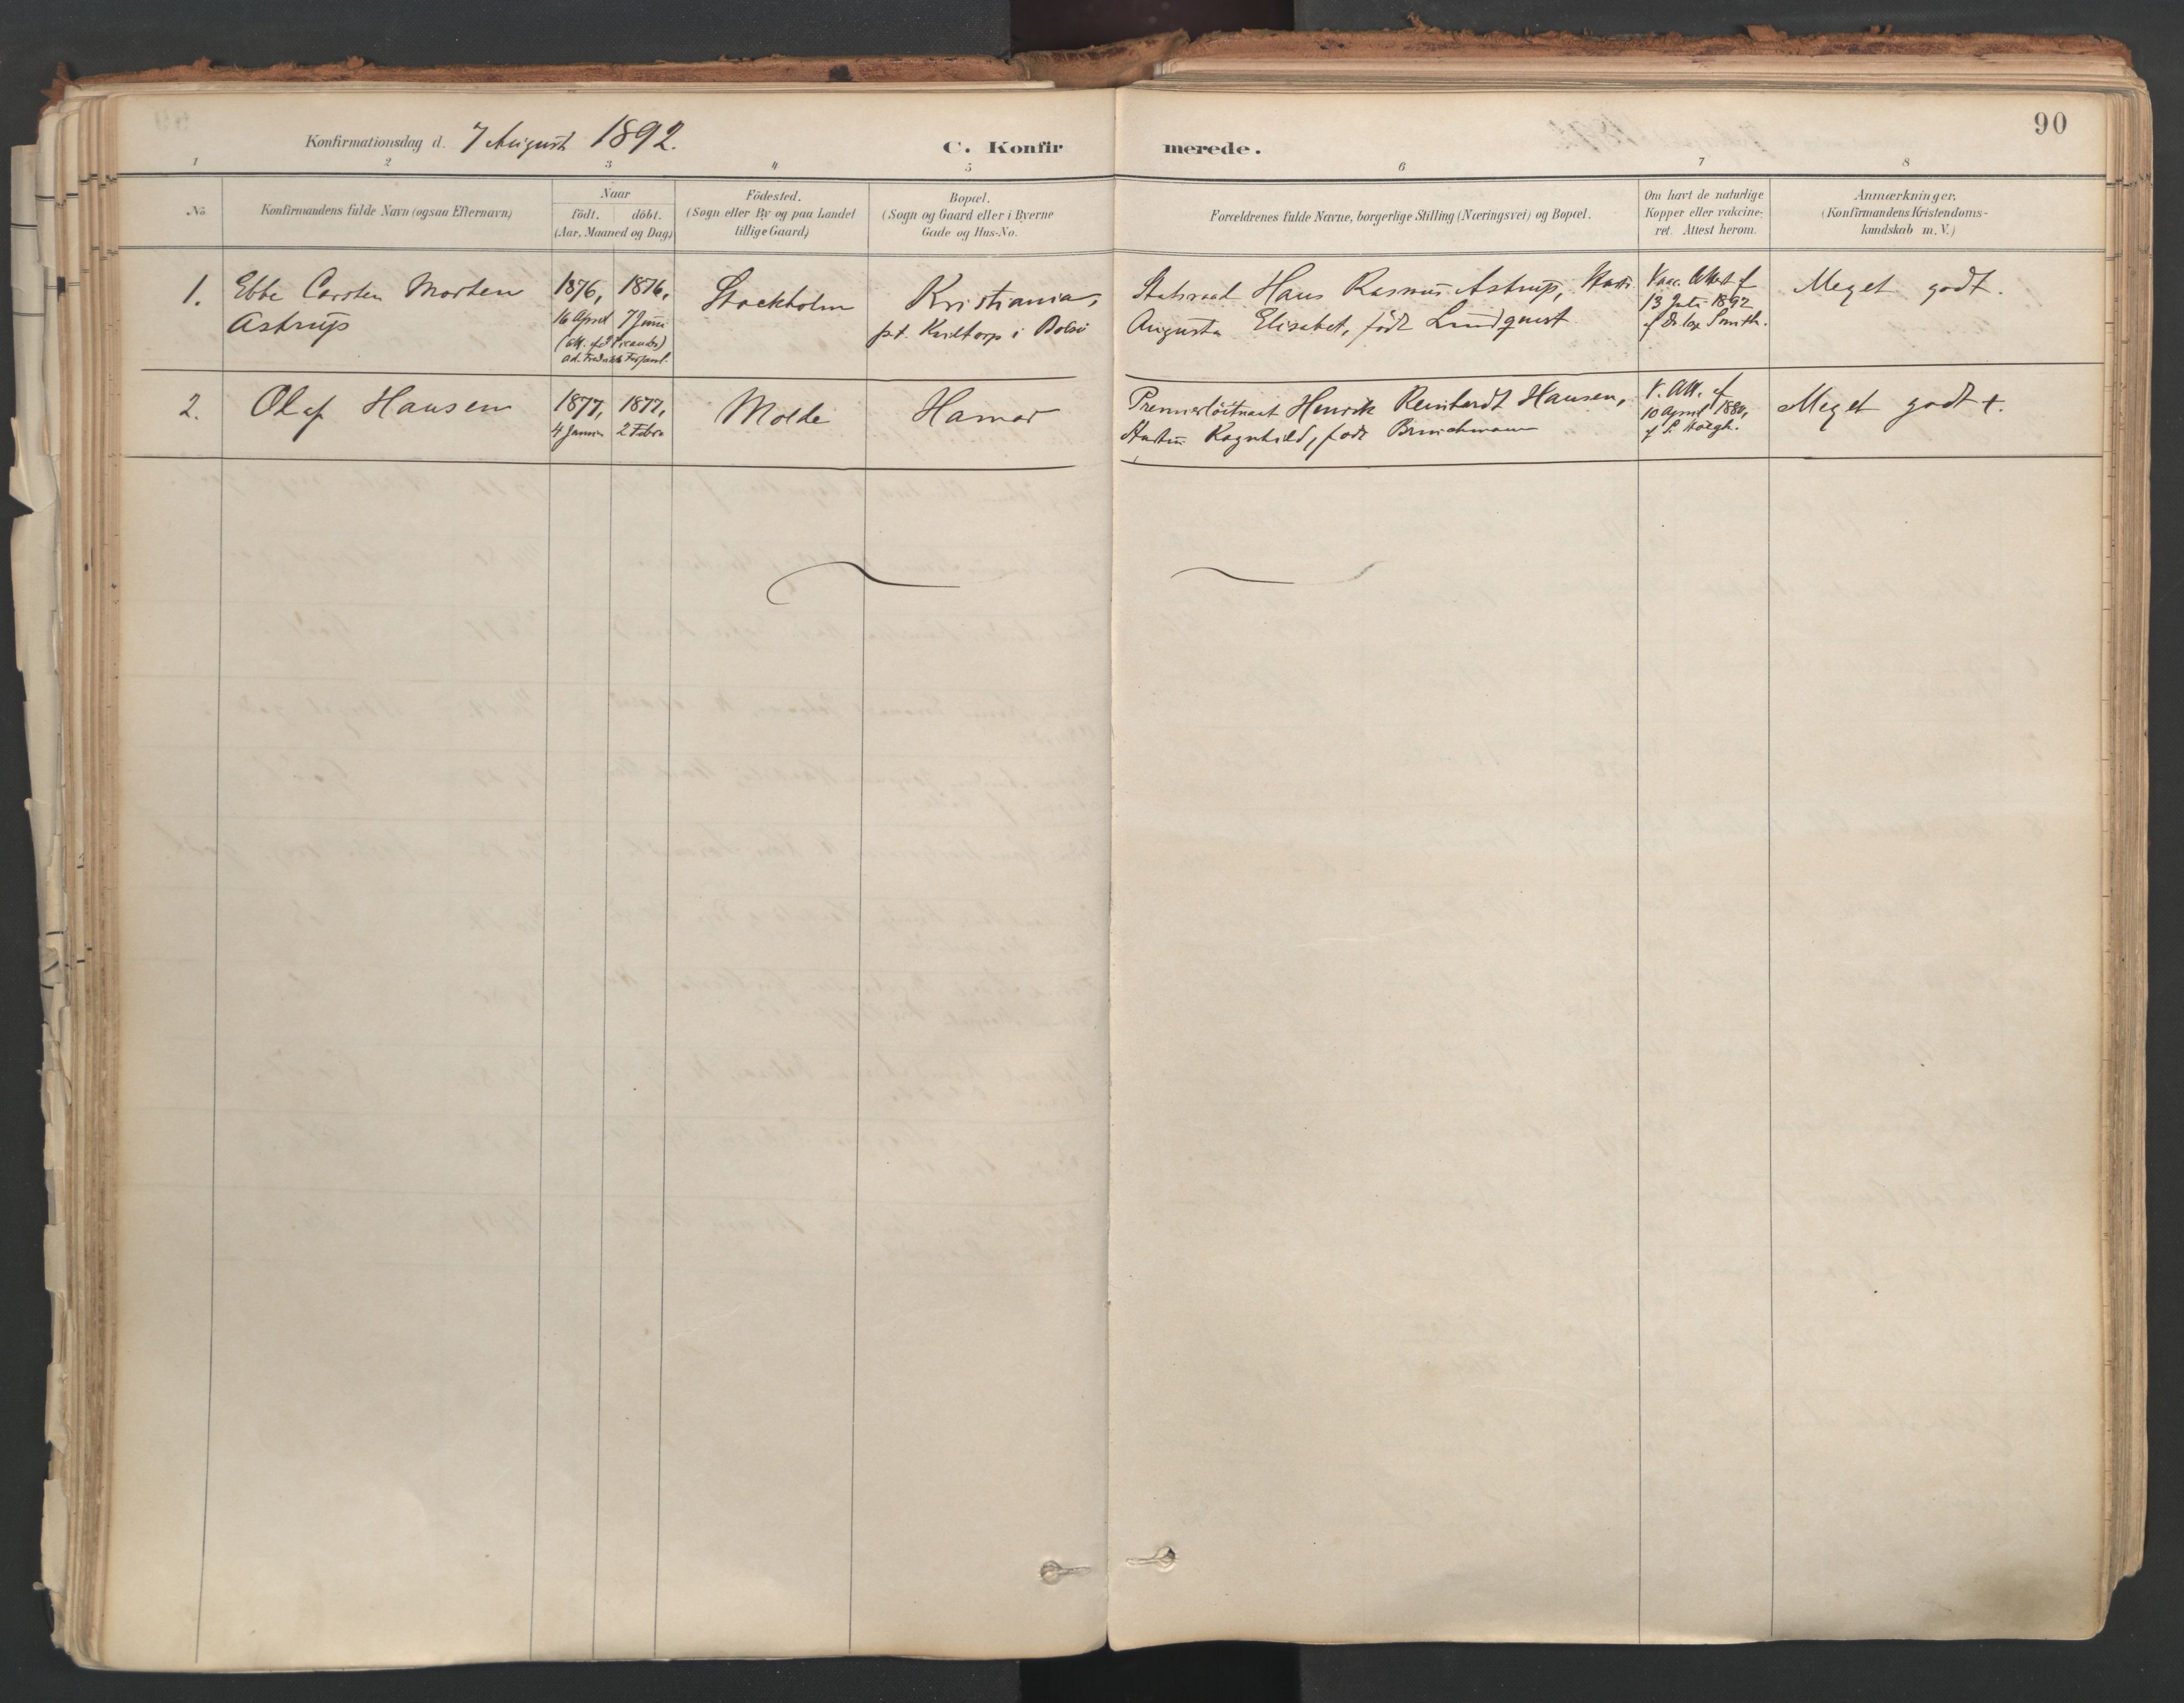 90
Konfirmationsdag d. 7 August 1892.
C. Konfirmerede.
1 2 3 4 5 6 7 8
No.
Konfirmandens fulde Navn (ogsaa Efternavn)
Naar
födt. döbt.
(Aar, Maaned og Dag)
Födested.
(Sogn eller By og paa Landet
tillige Gaard)
Bopæl.
(Sogn og Gaard eller i Byerne
Gade og Hus-No.
Forældrenes fulde Navne, borgerlige Stilling (Næringsvei) og Bopæl.
Om havt de naturlige
Kopper eller vakcine-
ret. Attest herom.
Anmærkninger.
(Konfirmandens Kristendoms-
kundskab m. V.)
1.
Ebbe Carsten Morten
Astrup
1876,
16 April
1876,
7 Juni
Stockholm
Kristiania,
p.t. i Bolsö
Statsraad Hans Rasmus Astrup, Hustru
Augusta Elisabet, född Lundquist
Vacc. Attest af
13 Juli 1892
af Smith.
Meget godt.
2.
Olaf Hansen
1877,
4 Januar
1877,
2 Febru
Molde
Hamar
Premierlöitnant Henrik Reinhardt Hansen,
Hustru Ragnhild, född
V. Att. af
10 April 1880,
af
Meget godt +.